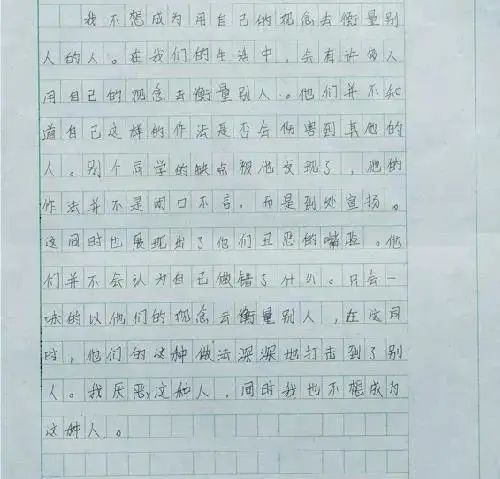 我不想成为用自己的观念去衡量别
人的人。在我们的生活中，会有许多人
用自己的观念去衡量别人。他们并不知
道自己这样的作法是否会伤害到其他的
人。别个同学的缺点被他发现了，他的
作法并不是闭口不言，而是到处宣扬。
这同时也展现出了他们丑恶的嘴脸。他
们并不会认为自己做错了什么。只会一
味的以他们的观念去衡量别人，在这同
时，他们的这种做法深深地打击到了别
人。我厌恶这种人，同时我也不想成为
这种人。